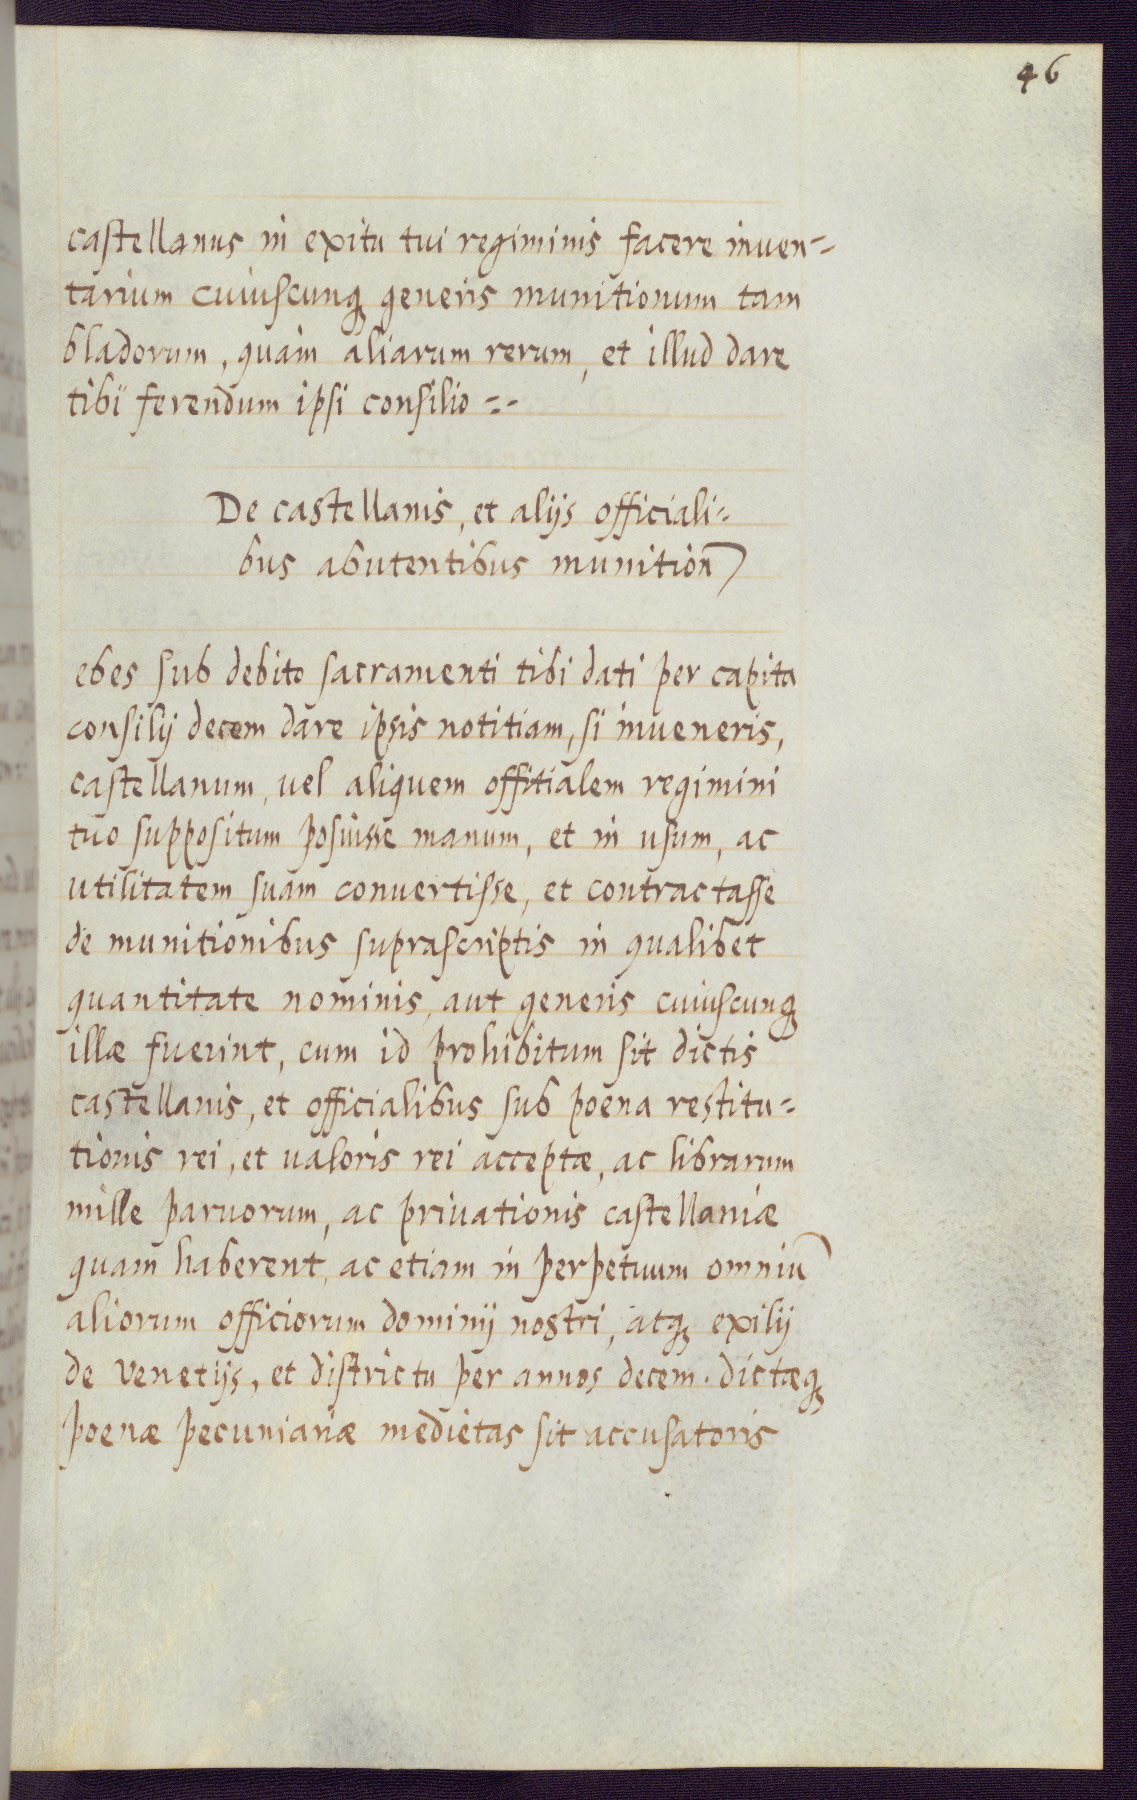 46
castellanus in exitu tui regiminis facere inuen=
tarium cuiuscunq generis munitionum tam
bladorum, quam aliarum rerum, et illud dare
tibi ferendum ipsi consilio =-
De castellanis, et alijs officiali=
bus abutentibus munition)
ebes sub debito sacramenti tibi dati per capita
consilij decem dare ipsis notitiam, si inueneris,
castellanum, uel aliquem offitialem regimini
tuo suppositum posuisse manum, et in usum, ac
utilitatem suam conuertisse, et contractasse
de munitionibus suprascriptis in qualibet
quantitate nominis, aut generis cuiuscunq
illæ fuerint, cum id prohibitum sit dictis
castellanis, et officialibus sub poena restitu=
tionis rei, et ualoris rei acceptæ, ac librarum
mille paruorum, ac priuationis castellaniæ
quam haberent, ac etiam in perpetuum omniū
aliorum officiorum dominij nostri, atq exilij
de Venetijs, et districtu per annos decem. dictæq
poenæ pecuniariæ medietas sit accusatoris